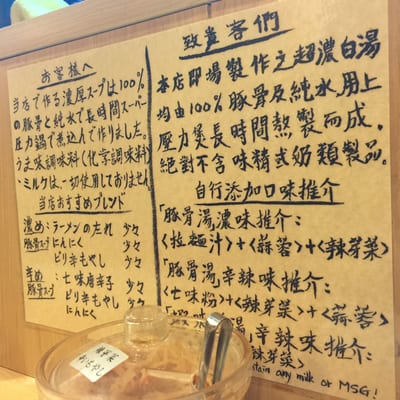 お客様へ
当店で作る濃厚スープは100%
の豚骨と純水で長時間スーパー
圧力鍋で煮込んで作りました。
うま味調味料(化学調味料)
・ミルクは、一切使用しておりません
当店おすすめブレンド
濃め:ラーメンのたれ 少々
豚骨スープ にんにく 少々
ピリ辛もやし 少々
辛め 七味唐辛子 少々
豚骨スープ ピリ辛もやし 少々
にんにく 少々
致貴客們
本店即場製作之超濃白湯
均由100%豚骨及純水,用上
壓力煲長時間熬製而成,
絕對不含味精或奶類製品。
自行添加口味推介
「豚骨湯」濃味推介:
<拉麵汁>+<蒜蓉>+<辣芽菜>
「豚骨湯」辛辣味推介:
<七味粉>+<辣芽菜>+<蒜蓉>
湯」辛辣味推介:
辣芽菜>
any milk or MSG!
辣芽菜